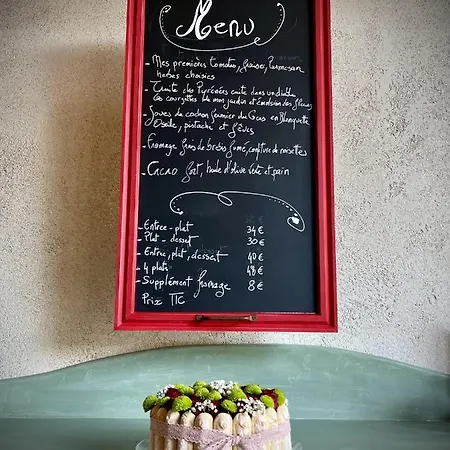 Menu
- Mes premières tomates, fraises, Parmesan
herbes choisies
- Truite des Pyrénées cuite dans un
les courgettes de mon jardin et émulsion des fleurs
- Joues de cochon fermier du Gers en Blanquette
Oseille, pistache et fèves
- Fromage frais de brebis fumé, confiture de noisettes
- Cacao fort, huile d'olive verte et pain
- Entrée - plat 34 €
- Plat - dessert 30 €
- Entrée, plat, dessert 40 €
- 4 plats 48 €
- Supplément fromage 8 €
Prix TTC